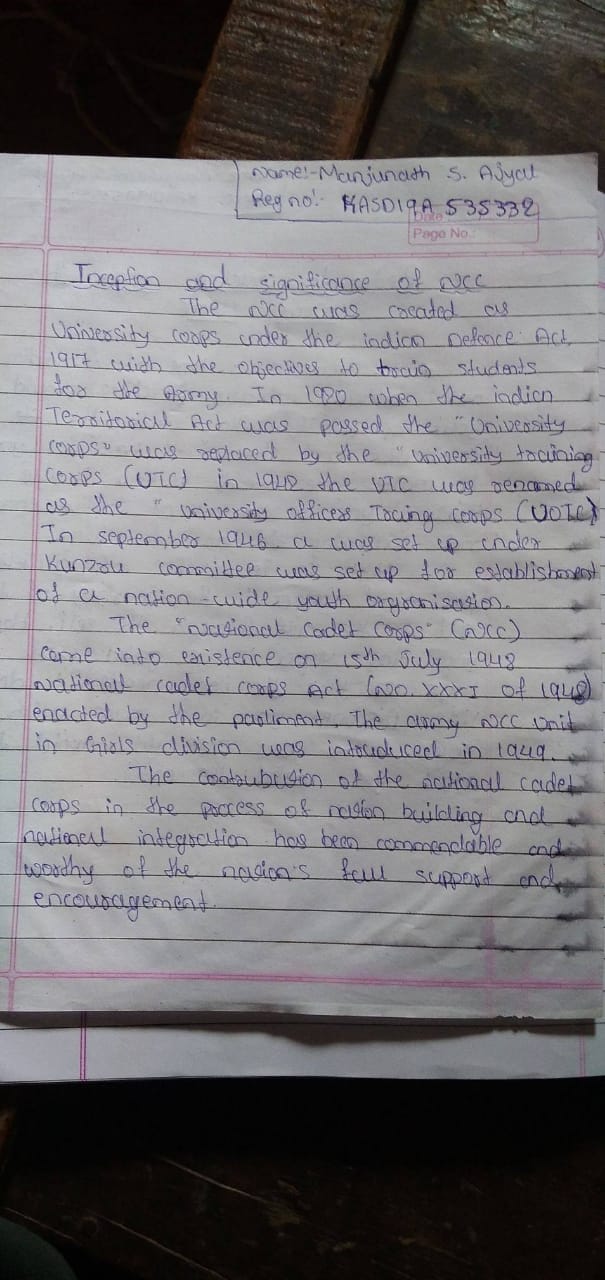 Name:- Manjunath S. Ajyal
Reg no:- KASD19A 535332
Date
Page No.
Inception and significance of NCC
The NCC was created as
University corps under the indian Defence Act,
1917 with the objectives to train students
for the Army In 1920 when the indian
Territorial Act was passed the "University
corps" was replaced by the "university training
corps (UTC) in 1942 the UTC was renamed
as the "university officers Tracing corps (UOTC)
In september 1946 a was set up under
Kunzou committee was set up for establishment
of a nation-wide youth orgranisation.
The "National Cadet Corps" (NCC)
came into existence on 15th July 1948
National cadet corps Act (NO. XXXI of 1948)
enacted by the parliment. The army NCC unit
in Girls division was intouduced in 1949.
The contoubution of the national cadet
corps in the process of nation building and
national integration has been commendable and
worthy of the nation's full support and
encouragement.